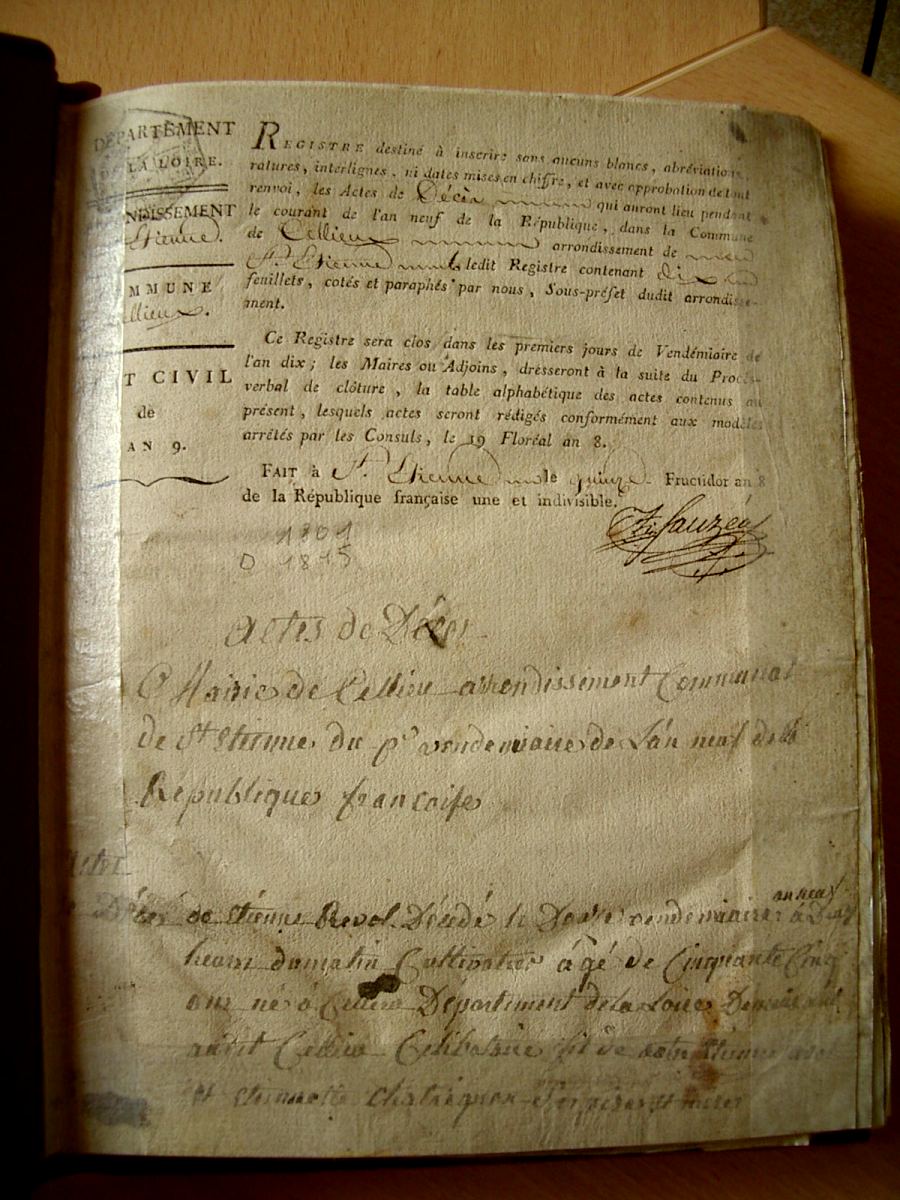 DÉPARTEMENT
DE LA LOIRE.
NDISSEMENT
Etienne.
MMUNE
ellieux.
T CIVIL
de
AN 9.
REGISTRE destiné à inscrire sans aucuns blancs, abréviations,
ratures, interlignes, ni dates mises en chiffre, et avec approbation de tout
renvoi, les Actes de Décès qui auront lieu pendant
le courant de l'an neuf de la République, dans la Commune
de Cellieux arrondissement de
St. Etienne ledit Registre contenant dix
feuillets, cotés et paraphés par nous, Sous-préfet dudit arrondisse-
ment.
Ce Registre sera clos dans les premiers jours de Vendémiaire de
l'an dix; les Maires ou Adjoins, dresseront à la suite du Procès-
verbal de clôture, la table alphabétique des actes contenus au
présent, lesquels actes seront rédigés conformément aux modèles
arrêtés par les Consuls, le 19 Floréal an 8.
FAIT à St. Etienne le quinze Fructidor an 8
de la République française une et indivisible.
Sauzea
1801
D 1815
Actes de Décès
Mairie de Cellieu arrondissement Communal
de St Etienne du pr vendemiaire de L'an neuf de la
République françoise
an neuf
de Etienne Revol Décédé le Douze vendemiaire à
heures du matin Cultivateur âgé de Cinquante Cinq
ans né à Cellieu Département de la Loire
audit Cellieu Celibataire fil de Etienne
et